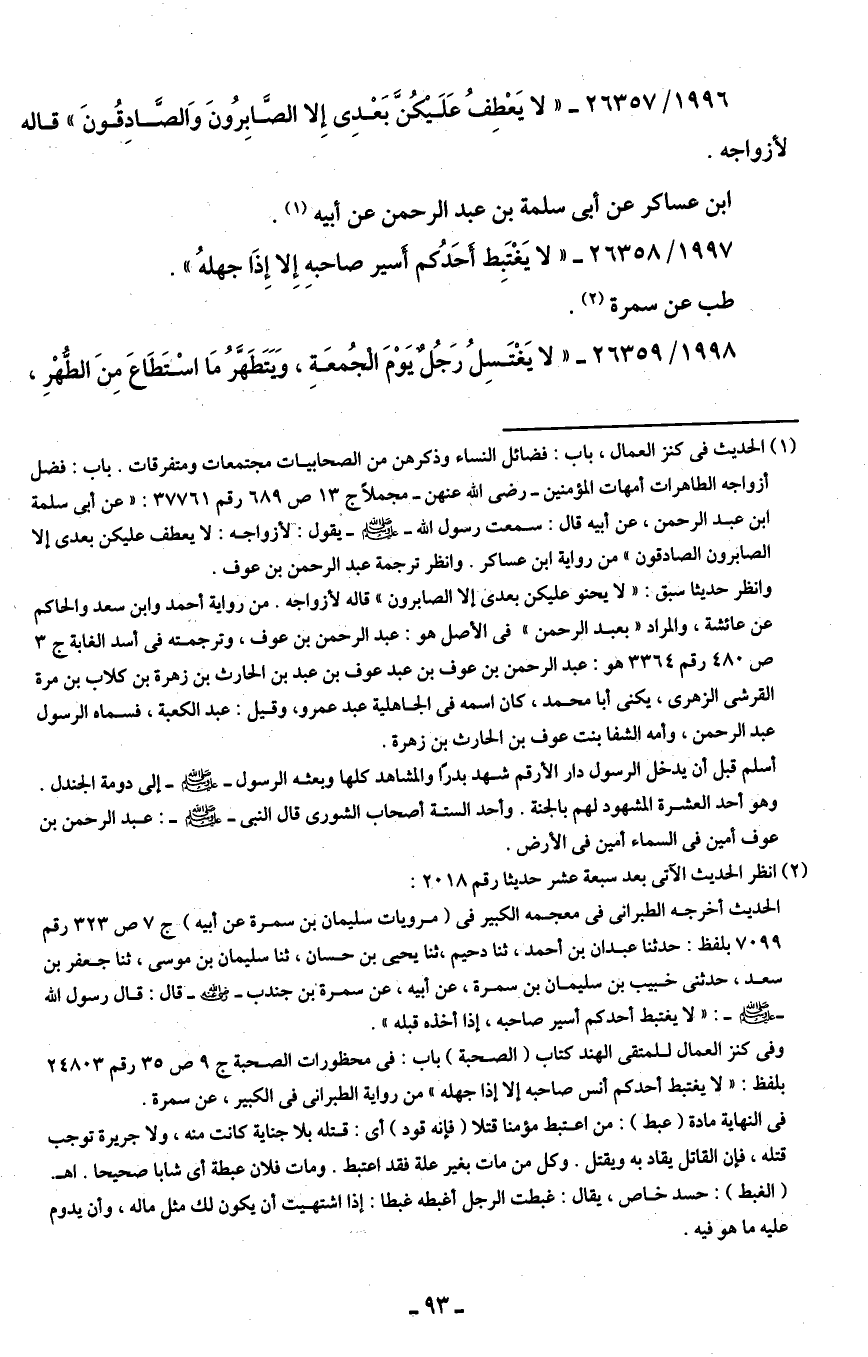 ١٩٩٦/ ٢٦٣٥٧ ـ « لا يَعْطِفُ عَلَيْكُنَّ بَعْدِى إِلا الصَّابِرُونَ وَالصَّادِقُونَ » قاله
لأزواجه .
ابن عساكر عن أبى سلمة بن عبد الرحمن عن أبيه (١) .
١٩٩٧/ ٢٦٣٥٨ ـ « لا يَغْتَبِط أَحَدُكُم أَسير صاحبهِ إِلا إِذَا جهلهُ » .
طب عن سمرة (٢) .
١٩٩٨/ ٢٦٣٥٩ ـ « لا يَغْتَسِلُ رَجُلٌ يَوْمَ الْجُمعَةِ ، وَيَتَطَهَّرُ مَا اسْتَطَاعَ مِنَ الطُّهْرِ ،
(١) الحديث فى كنز العمال ، باب : فضائل النساء وذكرهن من الصحابيات مجتمعات ومتفرقات . باب : فضل
أزواجه الطاهرات أمهات المؤمنين ـ رضى الله عنهن ـ مجملاً ج ١٣ ص ٦٨٩ رقم ٣٧٧٦١ : « عن أبى سلمة
ابن عبد الرحمن ، عن أبيه قال : سمعت رسول الله ـ ﷺ ـ يقول : لأزواجه : لا يعطف عليكن بعدى إلا
الصابرون الصادقون » من رواية ابن عساكر . وانظر ترجمة عبد الرحمن بن عوف .
وانظر حديثا سبق : « لا يحنو عليكن بعدى إلا الصابرون » قاله لأزواجه . من رواية أحمد وابن سعد والحاكم
عن عائشة ، والمراد « بعبد الرحمن » فى الأصل هو : عبد الرحمن بن عوف ، وترجمته فى أسد الغابة ج ٣
ص ٤٨٠ رقم ٣٣٦٤ هو : عبد الرحمن بن عوف بن عبد عوف بن عبد بن الحارث بن زهرة بن كلاب بن مرة
القرشى الزهرى ، يكنى أبا محمد ، كان اسمه فى الجاهلية عبد عمرو، وقيل : عبد الكعبة ، فسماه الرسول
عبد الرحمن ، وأمه الشفا بنت عوف بن الحارث بن زهرة .
أسلم قبل أن يدخل الرسول دار الأرقم شهد بدرًا والمشاهد كلها وبعثه الرسول ـ ﷺ ـ إلى دومة الجندل .
وهو أحد العشرة المشهود لهم بالجنة . وأحد الستة أصحاب الشورى قال النبى ـ ﷺ ـ : عبد الرحمن بن
عوف أمين فى السماء أمين فى الأرض .
(٢) انظر الحديث الآتى بعد سبعة عشر حديثا رقم ٢٠١٨ :
الحديث أخرجه الطبرانى فى معجمه الكبير فى ( مرويات سليمان بن سمرة عن أبيه ) ج ٧ ص ٣٢٣ رقم
٧٠٩٩ بلفظ : حدثنا عبدان بن أحمد ، ثنا دحيم ،ثنا يحيى بن حسان ، ثنا سليمان بن موسى ، ثنا جعفر بن
سعد ، حدثنى خبيب بن سليمان بن سمرة ، عن أبيه ، عن سمرة بن جندب ـ رضي الله عنه ـ قال : قال رسول الله
ـ ﷺ ـ : « لا يغتبط أحدكم أسير صاحبه ، إذا أخذه قبله » .
وفى كنز العمال للمتقى الهند كتاب ( الصحبة ) باب : فى محظورات الصحبة ج ٩ ص ٣٥ رقم ٢٤٨٠٣
بلفظ : « لا يغتبط أحدكم أنس صاحبه إلا إذا جهله » من رواية الطبرانى فى الكبير ، عن سمرة .
فى النهاية مادة ( عبط ) : من اعتبط مؤمنا قتلا ( فإنه قود ) أى : قتله بلا جناية كانت منه ، ولا جريرة توجب
قتله ، فإن القاتل يقاد به ويقتل . وكل من مات بغير علة فقد اعتبط . ومات فلان عبطة أى شابا صحيحا . اهـ.
( الغبط ) : حسد خاص ، يقال : غبطت الرجل أغبطه غبطا : إذا اشتهيت أن يكون لك مثل ماله ، وأن يدوم
عليه ما هو فيه .
ـ ٩٣ ـ